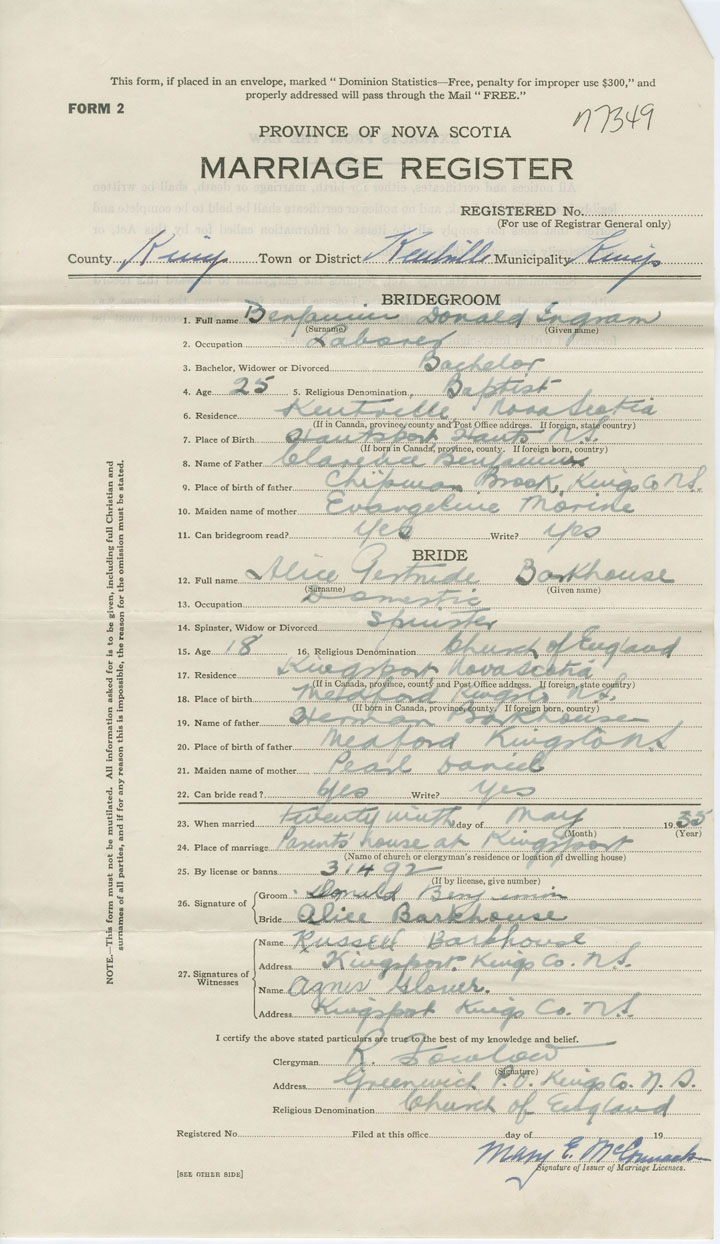 This form, if placed in an envelope, marked “ Dominion Statistics—Free, penalty for improper use $300,” and
properly addressed will pass through the Mail “ FREE.”
FORM 2
n7349
PROVINCE OF NOVA SCOTIA
MARRIAGE REGISTER
REGISTERED No.
(For use of Registrar General only)
County Kings Town or District Kentville Municipality Kings
BRIDEGROOM
1. Full name Benjamin Donald Ingram
(Surname) (Given name)
2. Occupation Laborer
3. Bachelor, Widower or Divorced Bachelor
4. Age 25 5. Religious Denomination Baptist
6. Residence Kentville Nova Scotia
(If in Canada, province, county and Post Office address. If foreign, state country)
7. Place of Birth Hantsport Hants N.S.
(If born in Canada, province, county. If foreign born, country)
8. Name of Father Clarence Benjamin
9. Place of birth of father Chipman Brook, Kings Co N.S.
10. Maiden name of mother Evangeline Morine
11. Can bridegroom read? Yes Write? yes
BRIDE
12. Full name Alice Gertrude Barkhouse
(Surname) (Given name)
13. Occupation Domestic
14. Spinster, Widow or Divorced Spinster
15. Age 18 16. Religious Denomination Church of England
17. Residence Kingsport Nova Scotia
(If in Canada, province, county and Post Office address. If foreign, state country)
18. Place of birth Medford Kings Co N.S.
(If born in Canada, province, county. If foreign born, country)
19. Name of father Herman Barkhouse
20. Place of birth of father Medford Kings Co N.S
21. Maiden name of mother Pearl Daniel
22. Can bride read? Yes Write? Yes
23. When married twenty ninth day of May 1935
(Month) (Year)
24. Place of marriage Parents' house at Kingsport
(Name of church or clergyman's residence or location of dwelling house)
25. By license or banns 31492
(If by license, give number)
26. Signature of Groom Donald Benjamin
Bride Alice Barkhouse
27. Signatures of Witnesses
Name Russell Barkhouse
Address Kingsport Kings Co. N.S.
Name Agnes Glover.
Address Kingsport Kings Co. N.S.
I certify the above stated particulars are true to the best of my knowledge and belief.
Clergyman R.
(Signature)
Address Greenwich P.O. Kings Co. N.S.
Religious Denomination Church of England
Registered No. Filed at this office day of 19
Mary E. McCormack
Signature of Issuer of Marriage Licenses.
[SEE OTHER SIDE]
NOTE.—This form must not be mutilated. All information asked for is to be given, including full Christian and
surnames of all parties, and if for any reason this is impossible, the reason for the omission must be stated.